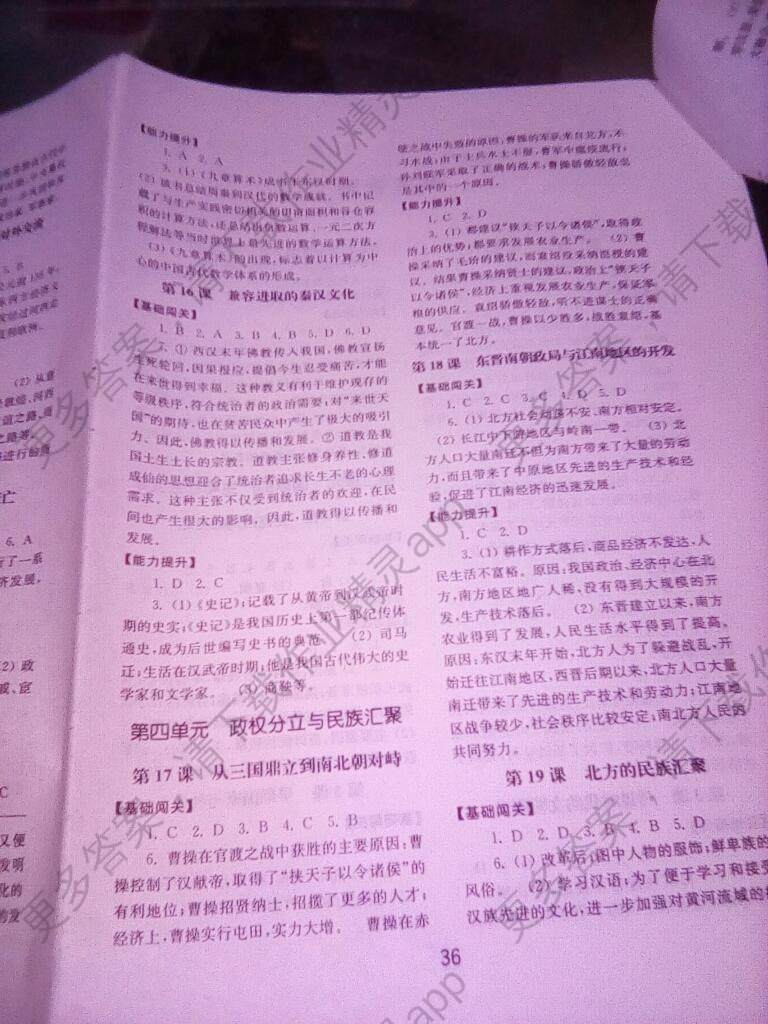 【能力提升】
1. A 2. A
3. (1)《九章算术》成书于东汉时期。
(2) 该书总结周秦到汉代的数学成就。书中记
载了与生产实践密切相关的田亩面积和谷仓容
积的计算方法,还总结出负数运算、一元二次方
程解法等当时世界上最先进的数学运算方法。
(3)《九章算术》的出现,标志着以计算为中
心的中国古代数学体系的形成。
第 16 课 兼容进取的秦汉文化
【基础闯关】
1. B 2. A 3. B 4. B 5. D 6. D
7. ① 西汉末年佛教传入我国,佛教宣扬
生死轮回,因果报应,提倡今生忍受痛苦,才能
在来世得到幸福。这种教义有利于维护现存的
等级秩序,符合统治者的政治需要;对“来世天
国”的期待,也在贫苦民众中产生了极大的吸引
力。因此,佛教得以传播和发展。② 道教是我
国土生土长的宗教。道教主张修身养性,修道
成仙的思想迎合了统治者追求长生不老的心理
需求。这种主张不仅受到统治者的欢迎,在民
间也产生很大的影响。因此,道教得以传播和
发展。
【能力提升】
1. D 2. C
3. (1)《史记》;记载了从黄帝到汉武帝时
期的史实;《史记》是我国历史上第一部纪传体
通史,成为后世编写史书的典范。 (2) 司马
迁;生活在汉武帝时期;他是我国古代伟大的史
学家和文学家。 (3) 商鞅等。
第四单元 政权分立与民族汇聚
第 17 课 从三国鼎立到南北朝对峙
【基础闯关】
1. C 2. D 3. B 4. C 5. B
6. 曹操在官渡之战中获胜的主要原因:曹
操控制了汉献帝,取得了“挟天子以令诸侯”的
有利地位;曹操招贤纳士,招揽了更多的人才;
经济上,曹操实行屯田,实力大增。 曹操在赤
壁之战中失败的原因:曹操的军队来自北方,不
习水战;由于士兵水土不服,曹军中瘟疫流行;
孙刘联军采取了正确的战术;曹操骄傲轻敌也
是其中的一个原因。
【能力提升】
1. C 2. D
3. (1) 都建议“挟天子以令诸侯”,取得政
治上的优势;都要求发展农业生产。 (2) 曹
操采纳了毛玠的建议,而袁绍没采纳沮授的建
议。结果曹操采纳贤士的建议,政治上“挟天子
以令诸侯”,经济上重视发展农业生产,保证军
粮的供应。袁绍骄傲轻敌,听不进谋士的正确
意见。官渡一战,曹操以少胜多,战胜袁绍,基
本统一了北方。
第 18 课 东晋南朝政局与江南地区的开发
【基础闯关】
1. C 2. C 3. C 4. D 5. D
6. (1) 北方社会动荡不安、南方相对安定。
(2) 长江中下游地区与岭南一带。 (3) 北
方人口大量南迁不但为南方带来了大量的劳动
力,而且带来了中原地区先进的生产技术和经
验,促进了江南经济的迅速发展。
【能力提升】
1. C 2. D
3. (1) 耕作方式落后,商品经济不发达,人
民生活不富裕。原因:我国政治、经济中心在北
方,南方地区地广人稀,没有得到大规模的开
发,生产技术落后。 (2) 东晋建立以来,南方
农业得到了发展,人民生活水平得到了提高。
原因:东汉末年开始,北方人为了躲避战乱,开
始迁往江南地区,西晋后期以来,北方人口大量
南迁带来了先进的生产技术和劳动力;江南地
区战争较少,社会秩序比较安定;南北方人民的
共同努力。
第 19 课 北方的民族汇聚
【基础闯关】
1. D 2. D 3. B 4. B 5. D
6. (1) 改革后;图中人物的服饰;鲜卑族的
风俗。 (2) 学习汉语;为了便于学习和接受
汉族先进的文化,进一步加强对黄河流域的
36
更多答案,请下载作业精灵app
更多答案,请下载作业精灵app